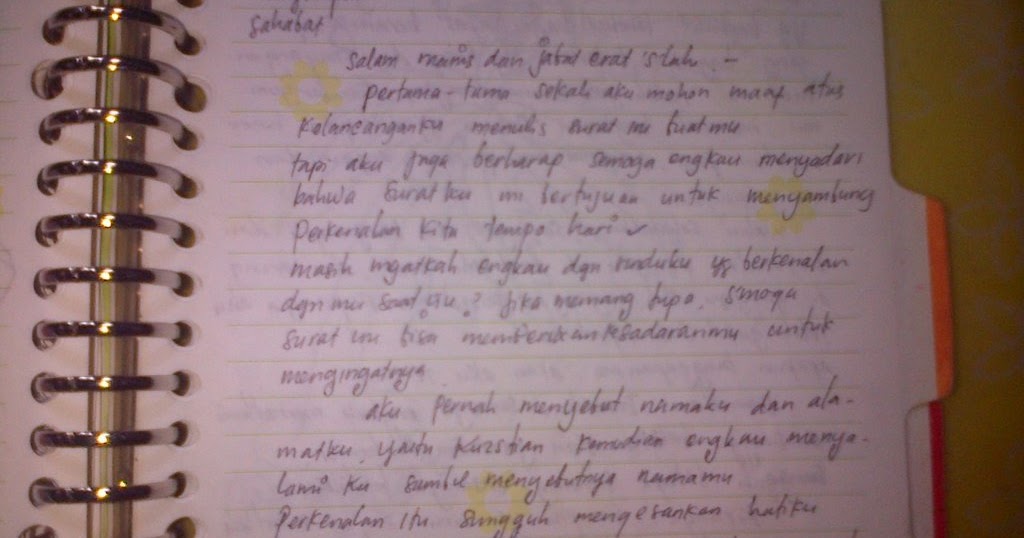 sahabat
salam manis dan jabat erat s'lalu. -
pertama-tama sekali aku mohon maaf atas
kelancanganku menulis surat ini buatmu
tapi aku juga berharap semoga engkau menyadari
bahwa suratku ini bertujuan untuk menyambung
perkenalan kita tempo hari
masih ingatkah engkau dgn yg berkenalan
dgn mu saat itu? jika memang lupa, smoga
surat ini bisa memberikan kesadaranmu untuk
mengingatnya
aku pernah menyebut namaku dan ala-
matku, yaitu kemudian engkau menya-
lami ku sambil menyebutnya namamu
Perkenalan itu sungguh mengesankan hatiku